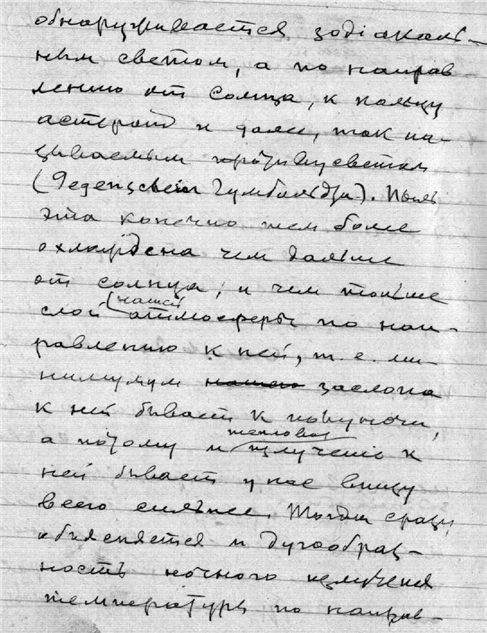 обнаруживается зодіакаль-
ным светом, а по направ-
лению от Солнца, к кольцу
астероид и далее, так на-
зываемым
(Гумбольдта). Пыль
эта конечно тем более
охлаждена чем дальше
от солнца, и чем тоньше
слой нашей атмосферы по нап-
равлению к ней, т. е. ми-
нимумум нашего заслона
к ней бывает к полуночи,
а потому и тепловое излученіе к
ней бывает у нас внизу
всего сильнее. Тогда сразу
объясняется и дугообраз-
ность ночного излучения
температуры по направ-